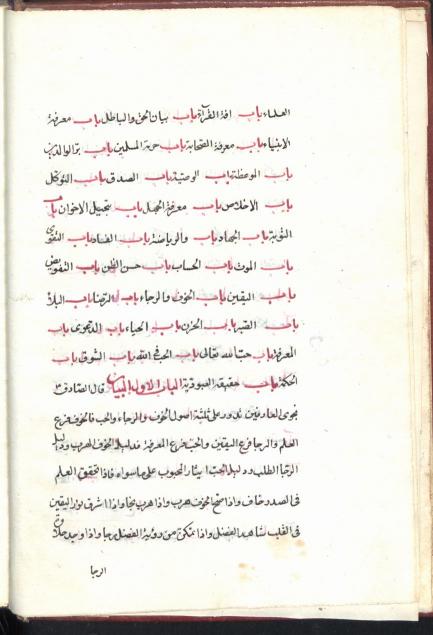 العلماء باب افة القرآء باب بيان الحق والباطل باب معرفة
الانبياء باب معرفة الصحابة باب حرمة المسلمين باب بر الوالدين
باب الموعظة باب الوصية باب الصدق باب التوكل
باب الاخلاص باب معرفة الجهل باب تبجيل الاخوان باب
التوبة باب الجهاد باب والرياضة باب الفساد باب التقوى
باب الموت باب الحساب باب حسن الظن باب التفويض
باب اليقين باب الخوف والرجاء باب الرضا باب البلاء
باب الصبر باب الحزن باب الحياء باب الدعوى باب
المعرفة باب حب الله تعالى باب الحب في الله باب الشوق باب
الحكمة باب حقيقة العبودية الباب الاول البيان قال الصادق
نجوى العارفين تدور على ثلثة اصول الخوف والرجاء والحب فالخوف فرع
العلم والرجا فرع اليقين والحب فرع المعرفة فدليل الخوف الهرب ودليل
الرجا الطلب ودليل الحب ايثار المحبوب على ما سواه فاذا تحقق العلم
فى الصدر خاف واذا صح الخوف هرب واذا هرب نجا واذا اشرق نور اليقين
فى القلب شاهد الفضل واذا تمكن من رؤية الفضل رجا واذا وجد حلاوة
الرجا